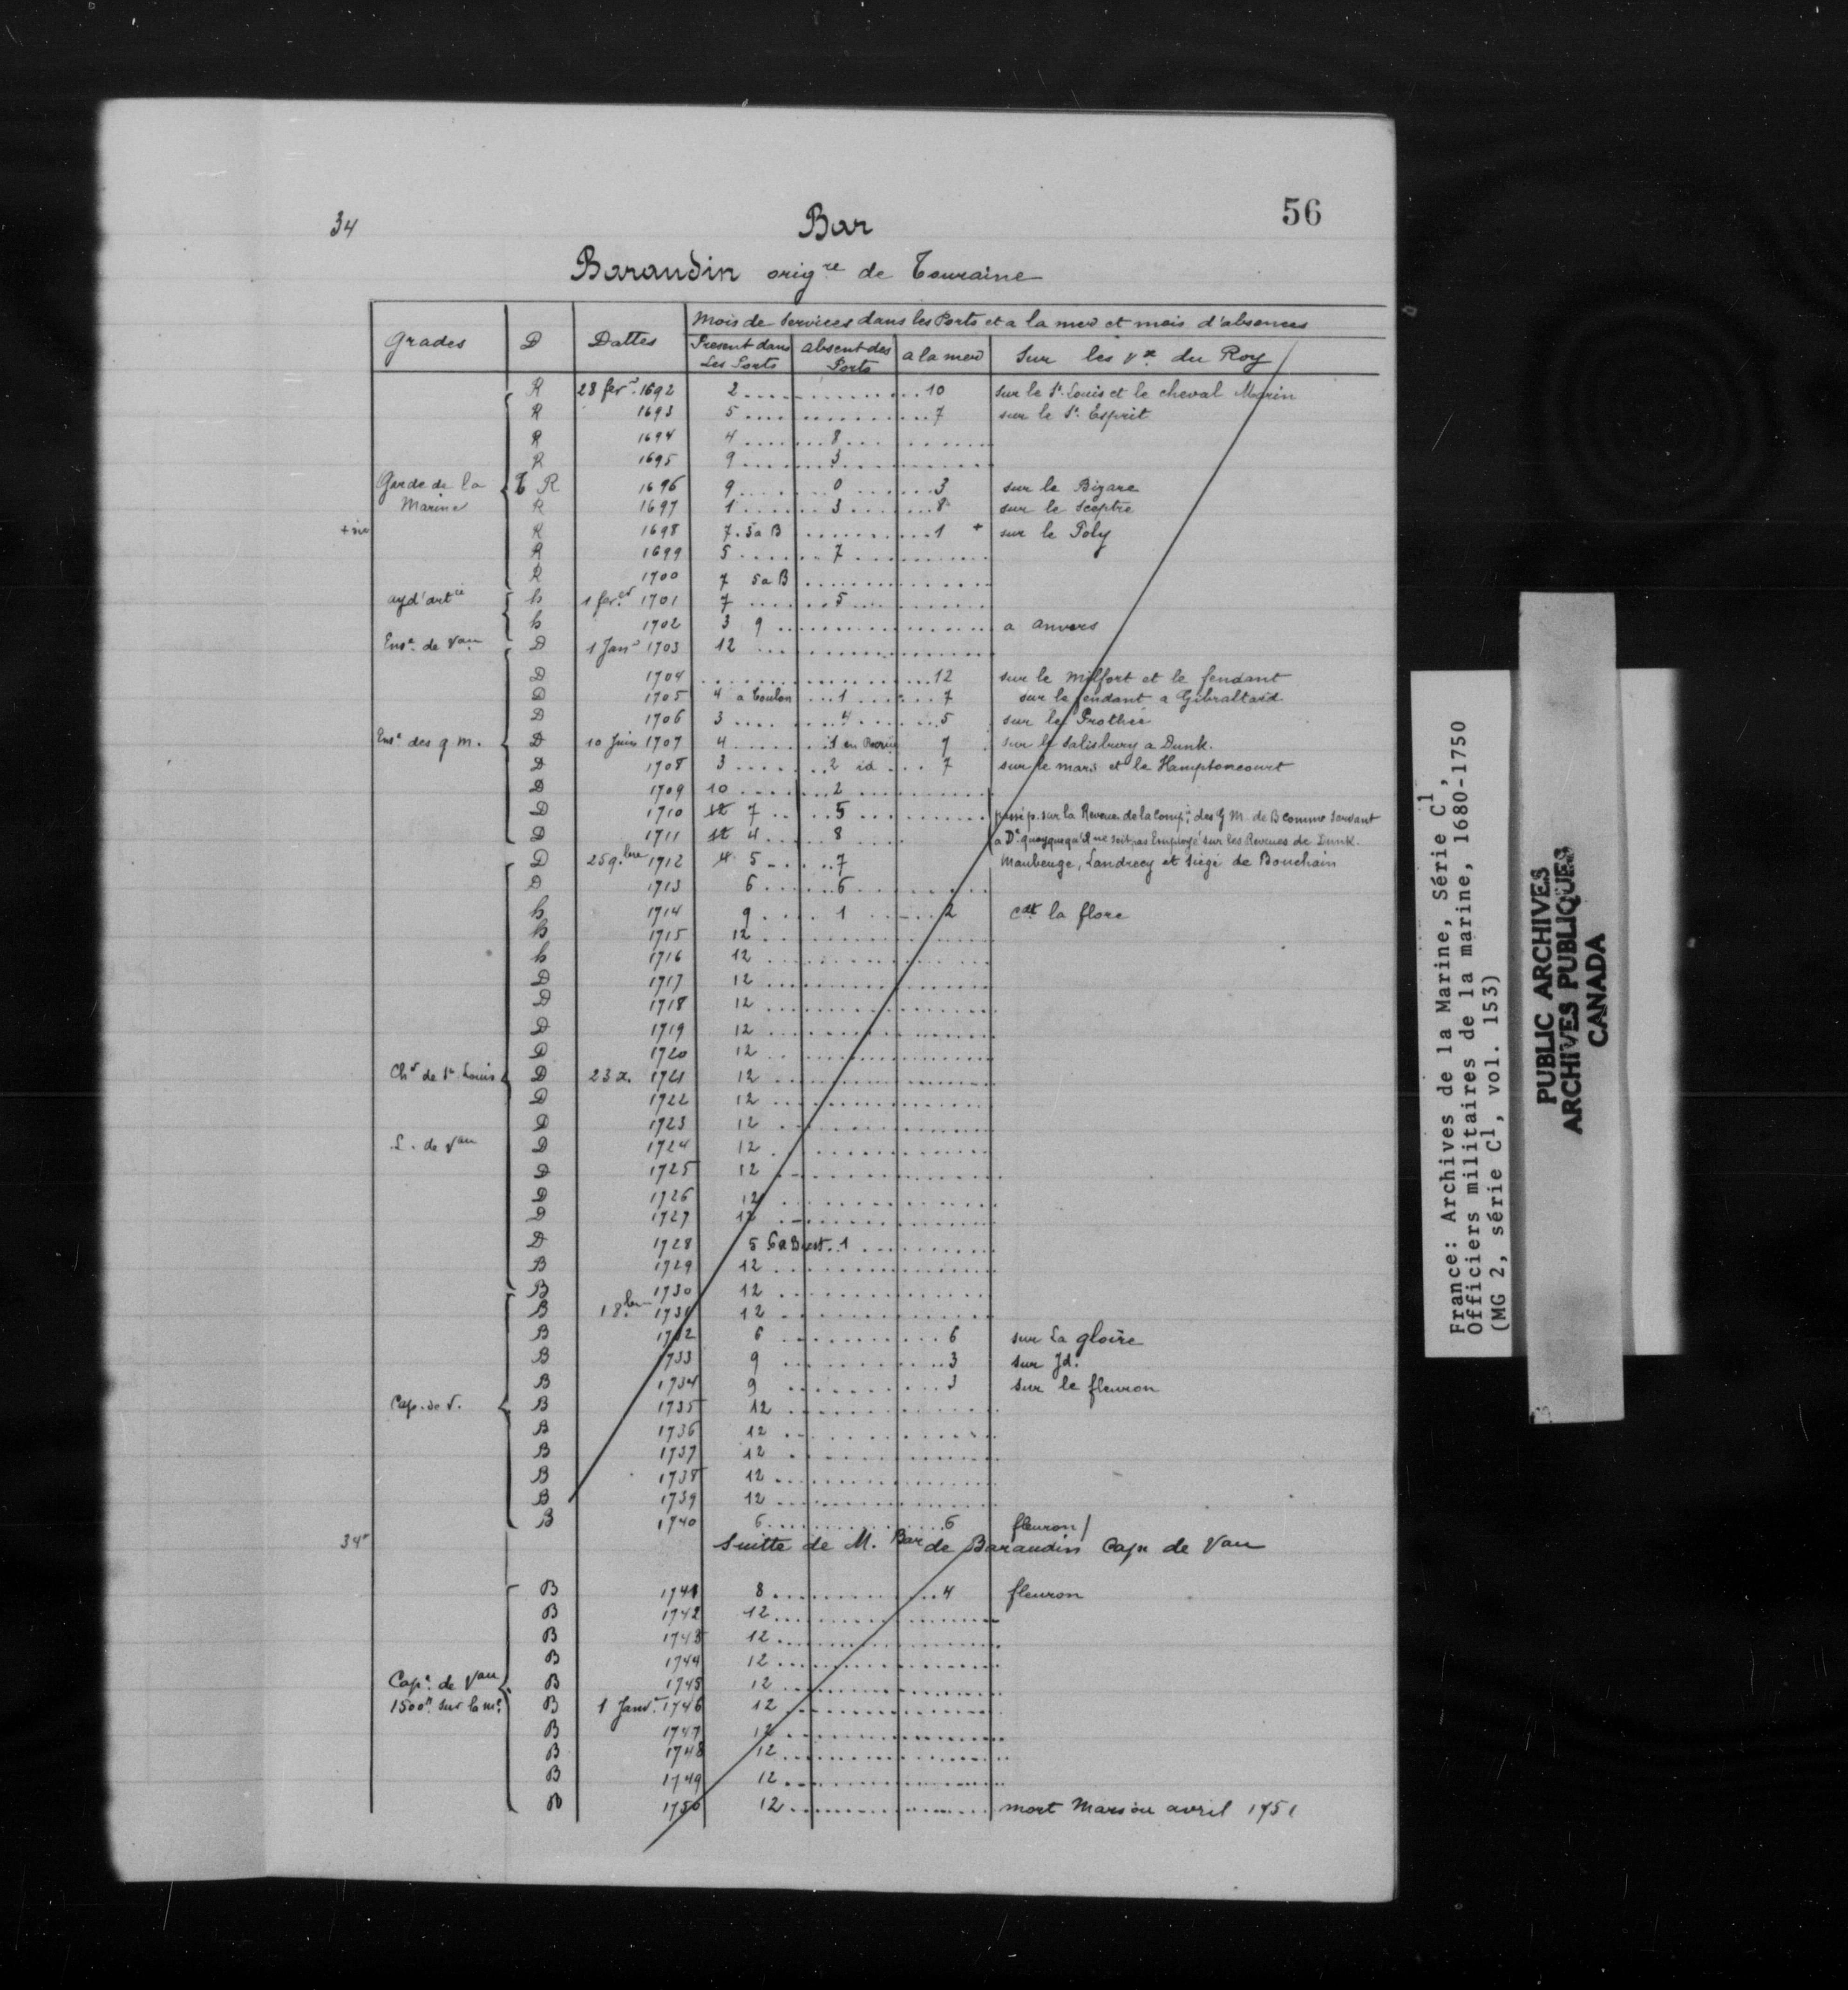 34 Bar 56
Baraudin orig.re de Touraine
Grades D Dattes Mois de Services dans les Ports et a la mer et mois d'absences
Present dans Les Ports absent des Ports a la mer Sur les Vx du Roy
R 28 fevr. 1692 2 .......... 10 sur le St. Louis et le cheval Marin
R 1693 5 .......... 7 sur le St. Esprit
R 1694 4 ..... 8 .....
R 1695 9 ..... 3 .....
Garde de la T R 1696 9 ..... 0 ..... 3 sur le Bizare
Marine R 1697 1 ..... 3 ..... 8 sur le Sceptre
+ sic R 1698 7. 5 a B .......... 1 + sur le Poly
R 1699 5 ..... 7 .....
R 1700 7 5 a B ..........
ayd'artie h 1 fer. 1701 7 ..... 5 .....
h 1702 3 9 .......... a anvers
Ense. de Vau D 1 Janr 1703 12 ..........
D 1704 .......... 12 sur le Milfort et le fendant
D 1705 4 a Toulon ... 1 ..... 7 sur le fendant a Gibraltard
D 1706 3 ..... 4 ..... 5 sur le Prothée
Ense des g m. D 10 Juin 1707 4 ..... 1 en 7 sur le Salisbury a Dunk.
D 1708 3 ..... 2 id ... 7 sur le mars et le Hamptoncourt
D 1709 10 ..... 2 .....
D 1710 12 7 .... 5 ..... passé p. sur la Revue de la Comp.e des G M. de B comme servant
D 1711 12 4 .... 8 .... a D. quoyquequ'il ne soit pas Employé sur les Revues de Dunk.
D 25 9.bre 1712 4 5 .... 7 Maubeuge, Landrecy et siege de Bouchain
D 1713 6 ..... 6 .....
h 1714 9 .... 1 ..... 2 cdt la flore
h 1715 12 ..........
h 1716 12 ..........
D 1717 12 ..........
D 1718 12 ..........
D 1719 12 ..........
D 1720 12 ..........
Chr de St. Louis D 23 x. 1721 12 ..........
D 1722 12 ..........
D 1723 12 ..........
L. de Vau D 1724 12 ..........
D 1725 12 ..........
D 1726 12 ..........
D 1727 12 ..........
D 1728 5 6 a Brest . 1 ..........
B 1729 12 ..........
B 1730 12 ..........
B 1 8.bre 1731 12 ..........
B 1732 6 .......... 6 sur La gloire
B 1733 9 .......... 3 sur Jd.
B 1734 9 .......... 3 sur le fleuron
Cap. de V. B 1735 12 ..........
B 1736 12 ..........
B 1737 12 ..........
B 1738 12 ..........
B 1739 12 ..........
B 1740 6 .......... 6 fleuron /
34v Suitte de M. Bar de Baraudin Capn de Vau
B 1741 8 .......... 4 fleuron
B 1742 12 ..........
B 1743 12 ..........
B 1744 12 ..........
Cap.e de Vau B 1745 12 ..........
1500tt sur la me. B 1 Janvr. 1746 12 ..........
B 1747 12 ..........
B 1748 12 ..........
B 1749 12 ..........
B 1750 12 .......... mort Mars ou avril 1751
France: Archives de la Marine, Série C1,
Officiers militaires de la marine, 1680-1750
(MG 2, série C1, vol. 153)
PUBLIC ARCHIVES
ARCHIVES PUBLIQUES
CANADA